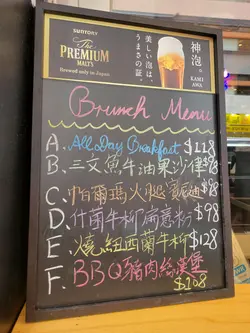 SUNTORY
The
PREMIUM
MALT'S
Brewed only in Japan
美しい泡は、
うまさの証。
神泡。
KAMI
AWA
Brunch Menu
A. All Day Breakfast $118
B. 三文魚牛油果沙律 $98
C. 帕爾瑪火腿 $98
D. 什菌牛柳 意粉 $98
E. 燒紐西蘭牛柳 $128
F. BBQ豬肉絲漢堡
$108